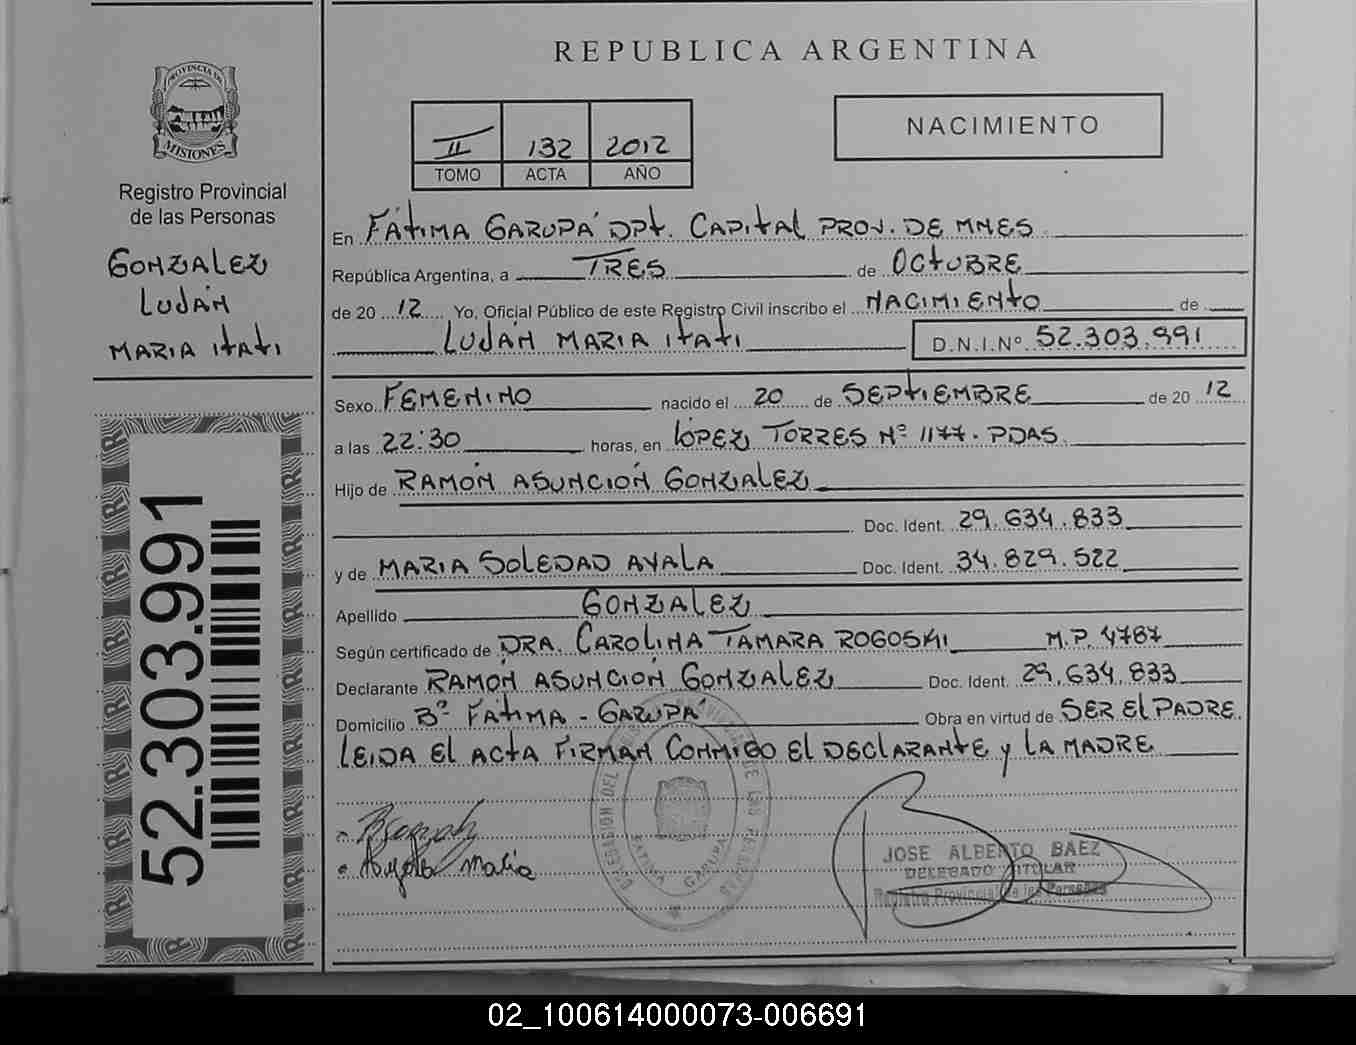 REPUBLICA ARGENTINA
PROVINCIA DE
MISIONES
Registro Provincial
de las Personas
GONZALEZ
LUJÁN
MARIA ITATI
II 132 2012
TOMO ACTA AÑO
NACIMIENTO
En FÁTIMA GARUPÁ DPT. CAPITAL PROV. DE MNES
República Argentina, a TRES de OCTUBRE
de 20 12 Yo, Oficial Público de este Registro Civil inscribo el NACIMIENTO de
LUJÁN MARIA ITATI D.N.I.Nº 52.303.991
Sexo FEMENINO nacido el 20 de SEPTIEMBRE de 20 12
a las 22:30 horas, en LÓPEZ TORRES Nº 1177. PDAS.
Hijo de RAMÓN ASUNCIÓN GONZALEZ
Doc. Ident. 29.634.833
y de MARIA SOLEDAD AYALA Doc. Ident. 34.829.522
Apellido GONZALEZ
Según certificado de DRA. CAROLINA TAMARA ROGOSKI M.P. 4787
Declarante RAMÓN ASUNCIÓN GONZALEZ Doc. Ident. 29.634.833
Domicilio Bº FÁTIMA - GARUPÁ Obra en virtud de SER EL PADRE.
LEIDA EL ACTA FIRMAN CONMIGO EL DECLARANTE y LA MADRE
Maria
FATIMA GARUPA
JOSE ALBERTO BAEZ
DELEGADO TITULAR
Registro Provincial de las Personas
52.303.991
02_100614000073-006691